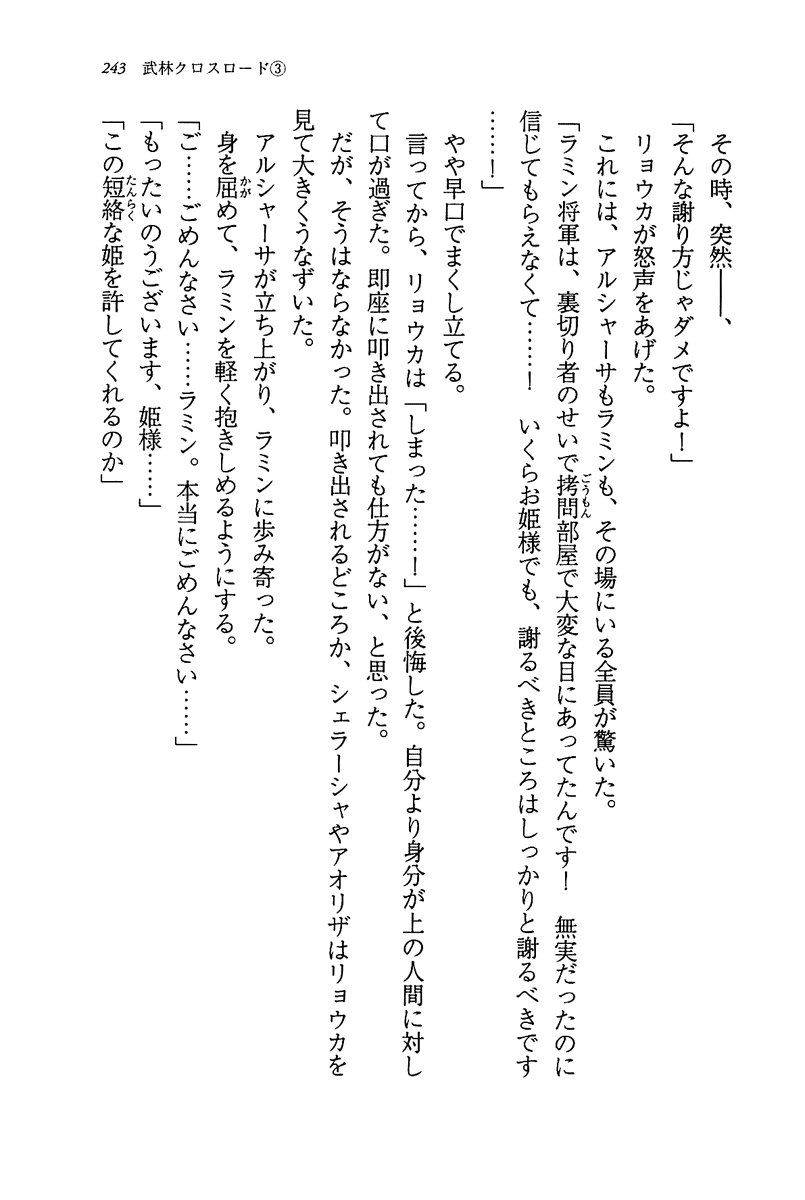 243 武林クロスロード③
その時、突然――、
「そんな謝り方じゃダメですよ！」
リョウカが怒声をあげた。
これには、アルシャーサもラミンも、その場にいる全員が驚いた。
「ラミン将軍は、裏切り者のせいで拷問部屋で大変な目にあってたんです！　無実だったのに
信じてもらえなくて……！　いくらお姫様でも、謝るべきところはしっかりと謝るべきです
……！」
やや早口でまくし立てる。
言ってから、リョウカは「しまった……！」と後悔した。自分より身分が上の人間に対し
て口が過ぎた。即座に叩き出されても仕方がない、と思った。
だが、そうはならなかった。叩き出されるどころか、シェラーシャやアオリザはリョウカを
見て大きくうなずいた。
アルシャーサが立ち上がり、ラミンに歩み寄った。
身を屈めて、ラミンを軽く抱きしめるようにする。
「ご……ごめんなさい……ラミン。本当にごめんなさい……」
「もったいのうございます、姫様……」
「この短絡な姫を許してくれるのか」